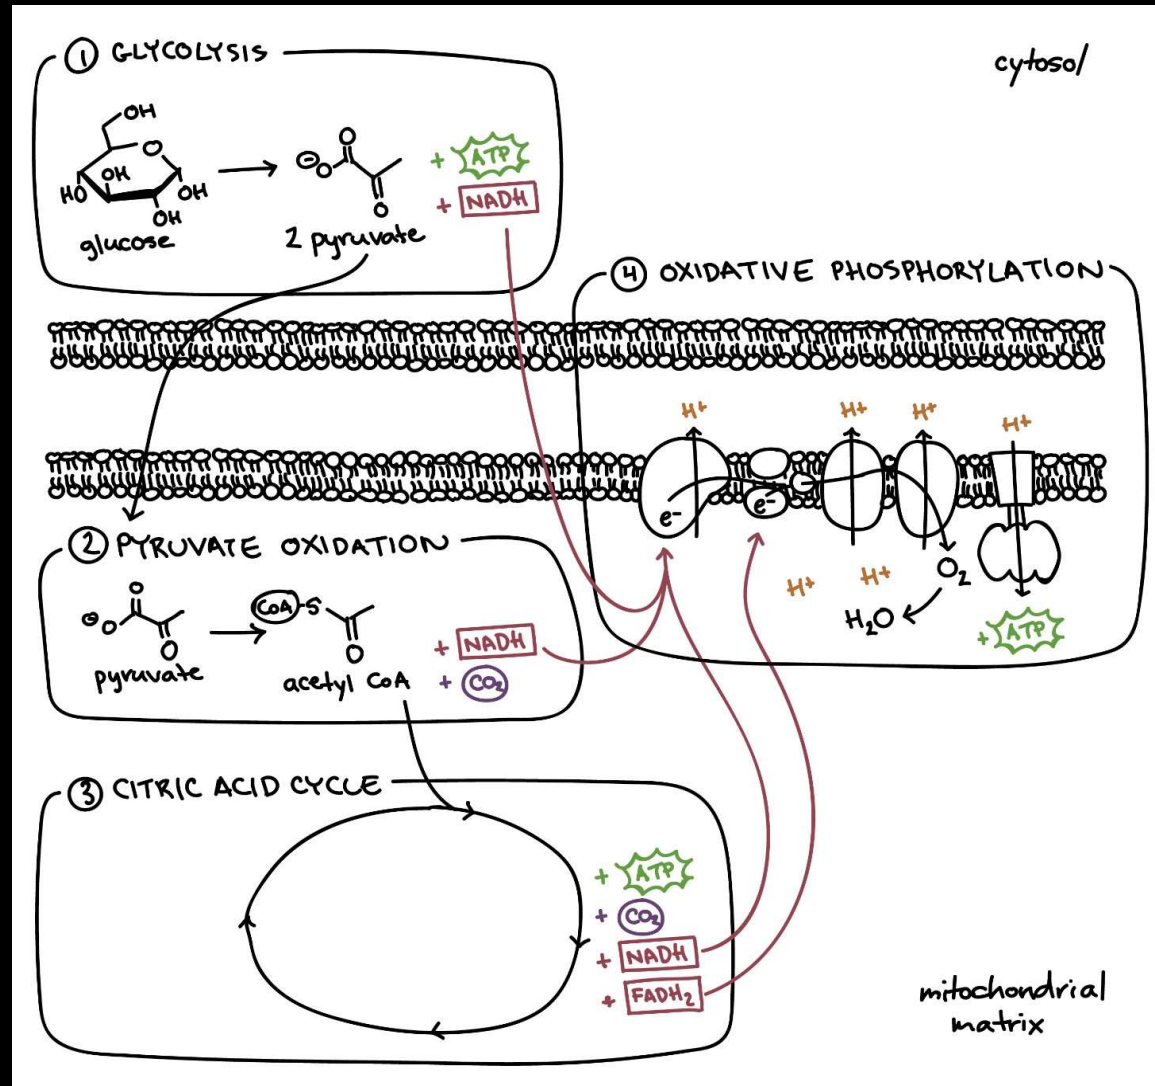 ① GLYCOLYSIS
cytosol
OH
O
OH
HO
OH
OH
glucose
⊖O
O
O
2 pyruvate
+ ATP
+ NADH
④ OXIDATIVE PHOSPHORYLATION
H+
H+
H+
H+
e-
e-
H+
H+
O2
H2O
+ ATP
② PYRUVATE OXIDATION
⊖O
O
O
pyruvate
CoA-S
O
acetyl CoA
+ NADH
+ CO2
③ CITRIC ACID CYCLE
+ ATP
+ CO2
+ NADH
+ FADH2
mitochondrial
matrix